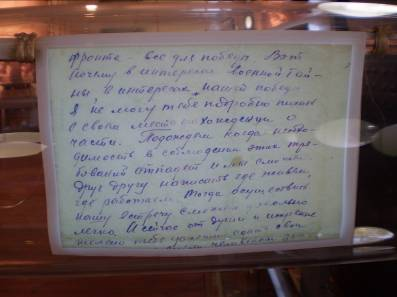 фронта - все для победы. Вот
почему в интересах военной тай-
ны в интересах нашей победы
я не могу тебе подробно писать
о своем местонахождении о
части. Подождем когда необхо-
димость в соблюдении этих тре-
бований отпадет и мы сможем
друг другу написать где живем,
где работаем. Тогда осуществить
нашу встречу сможем довольно
легко. И сейчас от души и искренне
желаю тебе